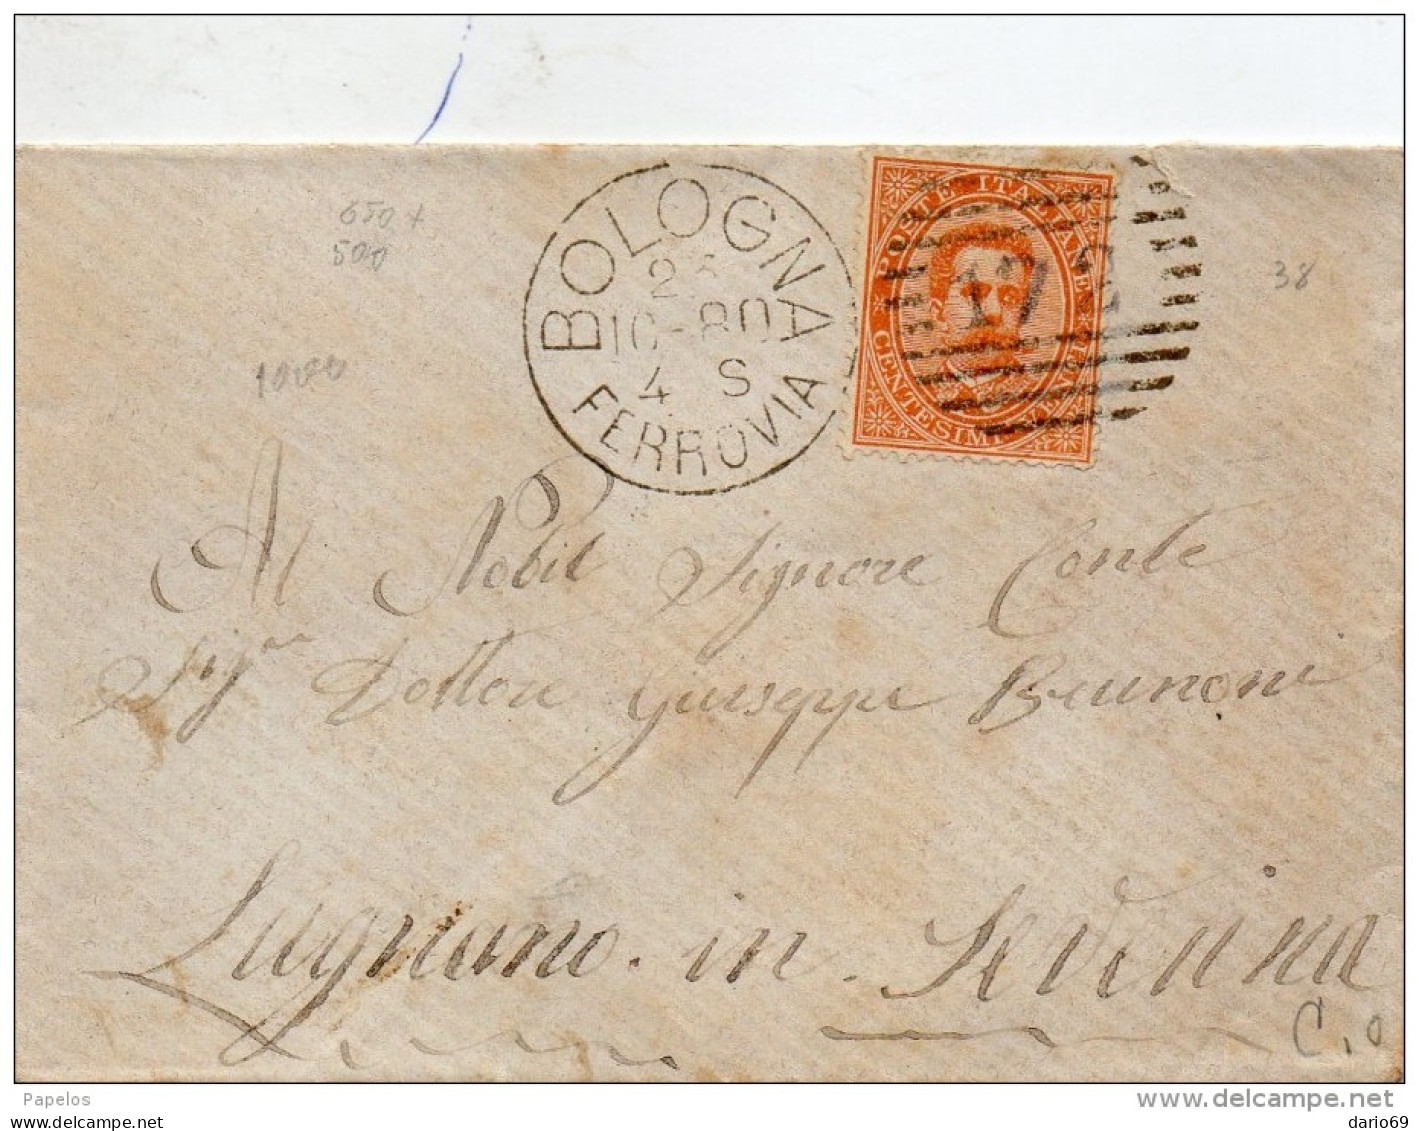 650 +
500
1000
38
BOLOGNA
10-80
4 S
FERROVIA
POSTE ITALIANE
CENTESIMI VENTI
Al Nobil Signore Conte
Sigr Dottore Giuseppe Brunone
Lugnano in
C.O
Papelos
delcampe.net
dario69